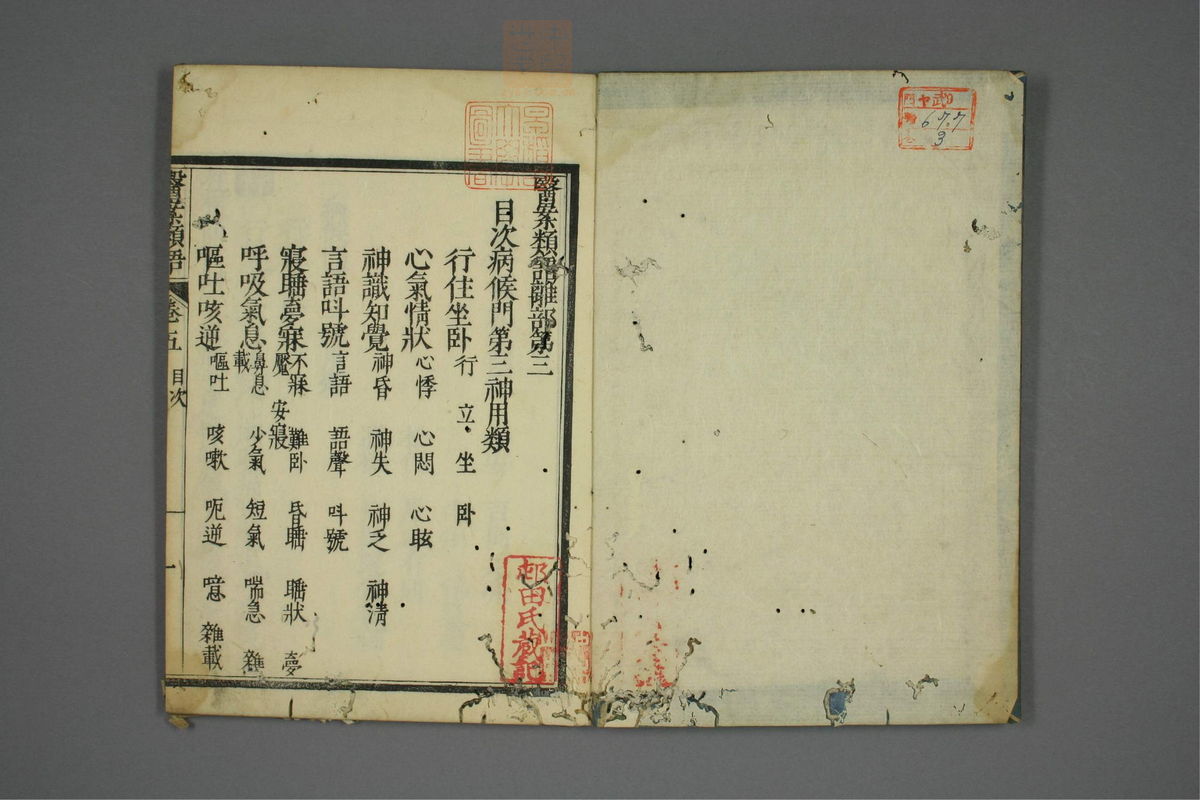 醫案類語雜部第三
目次病候門第三神用類
行住坐卧 行 立 坐 卧
心氣情狀 心悸 心悶 心眩
神識知覺 神昏 神失 神乏 神清
言語呌號 言語 語聲 呌號
寢𥆧夢寐 不寐 難卧 昏𥆧 𥆧狀 夢
魘 安寢
呼吸氣息 鼻息 少氣 短氣 喘急 雜
載
嘔吐咳逆 嘔吐 咳嗽 呃逆 噫 雜載
醫案類語 卷五 目次 一
邨田氏藏記
677
3